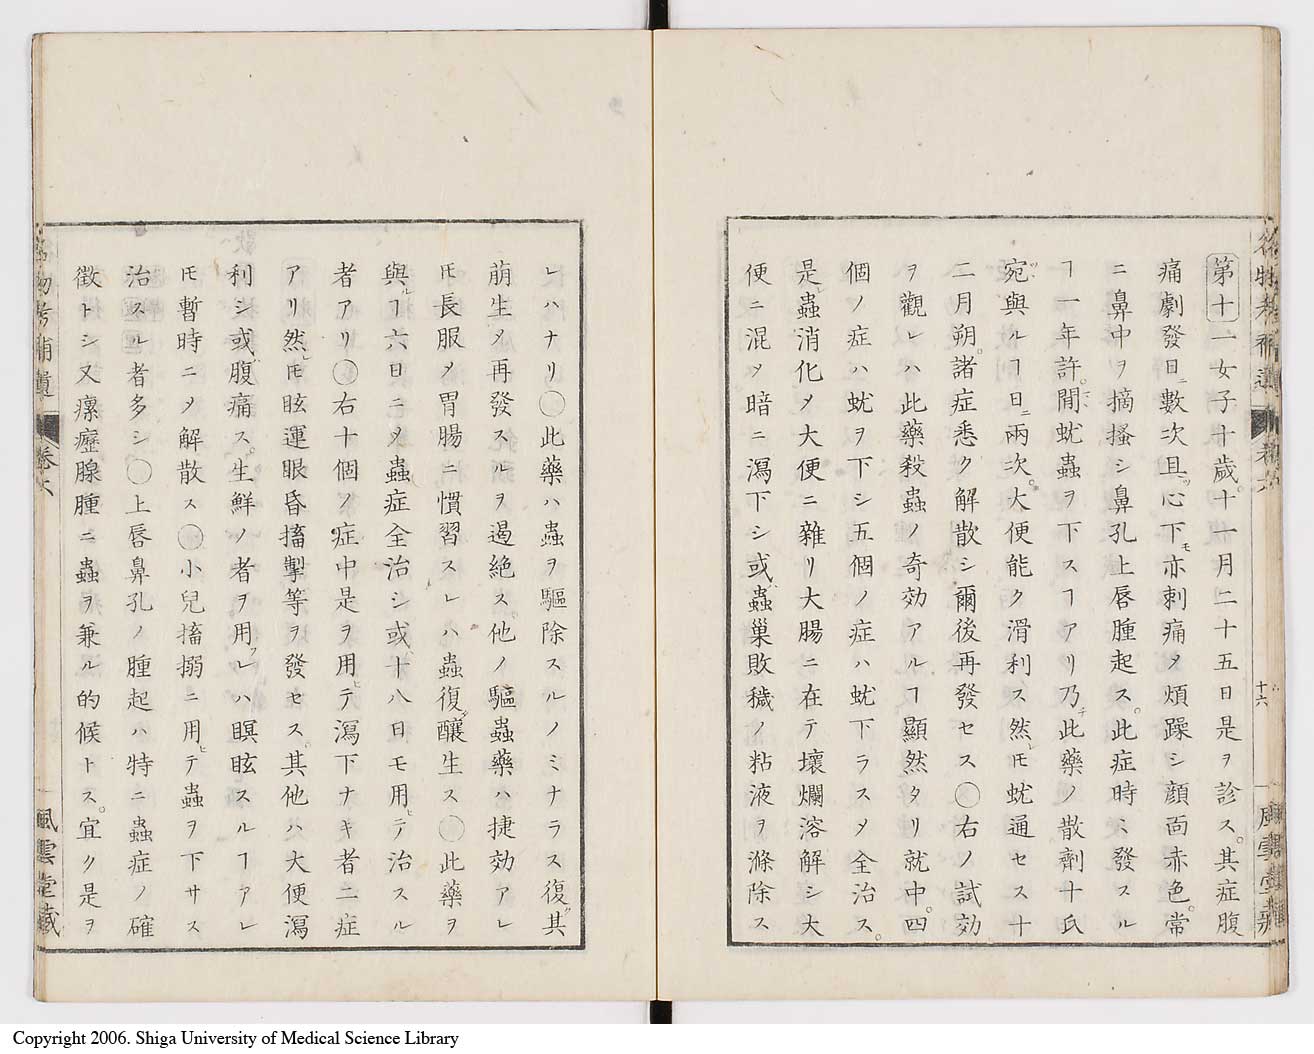 第十一女子十歳。十一月二十五日是ヲ診ス。其症腹
痛劇發日ニ數次且ツ心下モ亦刺痛〆煩躁シ顔面赤色。常
ニ鼻中ヲ摘搔シ鼻孔上唇腫起ス。此症時ミ發スル
ヿ一年許。間蚘蟲ヲ下スヿアリ乃チ此藥ノ散劑十氏
宛與ルヿ日ニ兩次。大便能ク滑利ス然レ𪜈蚘通セス十
二月朔。諸症悉ク解散シ爾後再發セス〇右ノ試効
ヲ觀レハ此藥殺蟲ノ奇効アルヿ顯然タリ就中。四
個ノ症ハ蚘ヲ下シ五個ノ症ハ蚘下ラス〆全治ス。
是レ蟲消化〆大便ニ雜リ大腸ニ在テ壞爛溶解シ大
便ニ混〆暗ニ瀉下シ或ハ蟲巢敗穢ノ粘液ヲ滌除ス
十六
レハナリ〇此藥ハ蟲ヲ驅除スルノミナラス復タ其
萠生〆再發スルヲ遏絶ス。他ノ驅蟲藥ハ捷効アレ
𪜈長服〆胃腸ニ慣習スレハ蟲復タ釀生ス〇此藥ヲ
與ルヿ六日ニ〆蟲症全治シ或ハ十八日モ用ヒテ治スル
者アリ〇右十個ノ症中是ヲ用ヒテ瀉下ナキ者二症
アリ然レ𪜈眩運眼昏搐掣等ヲ發セス。其他ハ大便瀉
利シ或ハ腹痛ス。生鮮ノ者ヲ用フレハ瞑眩スルヿアレ
𪜈暫時ニ〆解散ス〇小兒搐搦ニ用ヒテ蟲ヲ下サス
治スル者多シ〇上唇鼻孔ノ腫起ハ特ニ蟲症ノ確
徵トシ又瘰癧腺腫ニ蟲ヲ兼ル的候トス。宜ク是ヲ
名物考補遺 卷六
風雲堂藏
Copyright 2006. Shiga University of Medical Science Library